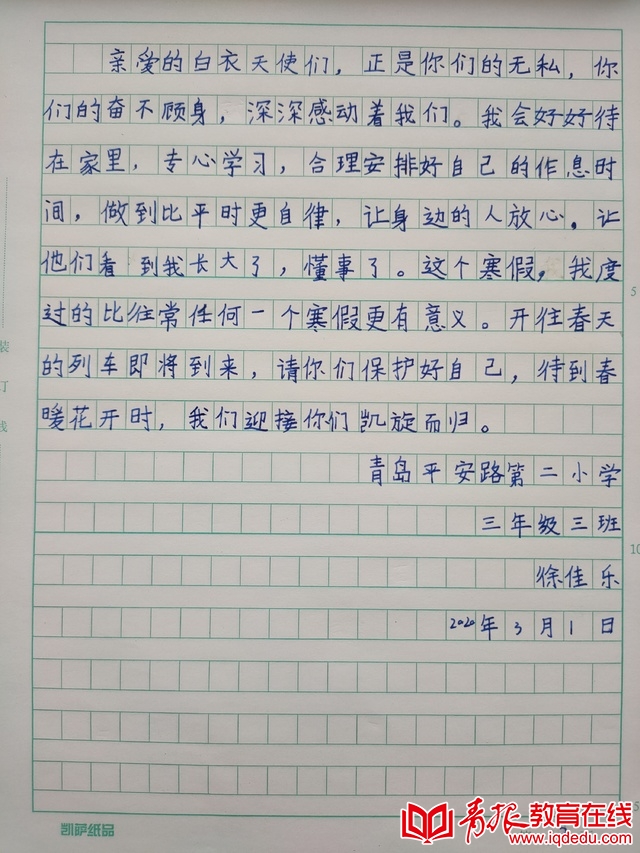 亲爱的白衣天使们，正是你们的无私，你
们的奋不顾身，深深感动着我们。我会好好待
在家里，专心学习，合理安排好自己的作息时
间，做到比平时更自律，让身边的人放心。让
他们看到我长大了，懂事了。这个寒假，我度
过的比往常任何一个寒假更有意义。开往春天
的列车即将到来，请你们保护好自己，待到春
暖花开时，我们迎接你们凯旋而归。
青岛平安路第二小学
三年级三班
徐佳乐
2020年3月1日
装
订
线
5
10
凯萨纸品
青报教育在线
www.iqdedu.com